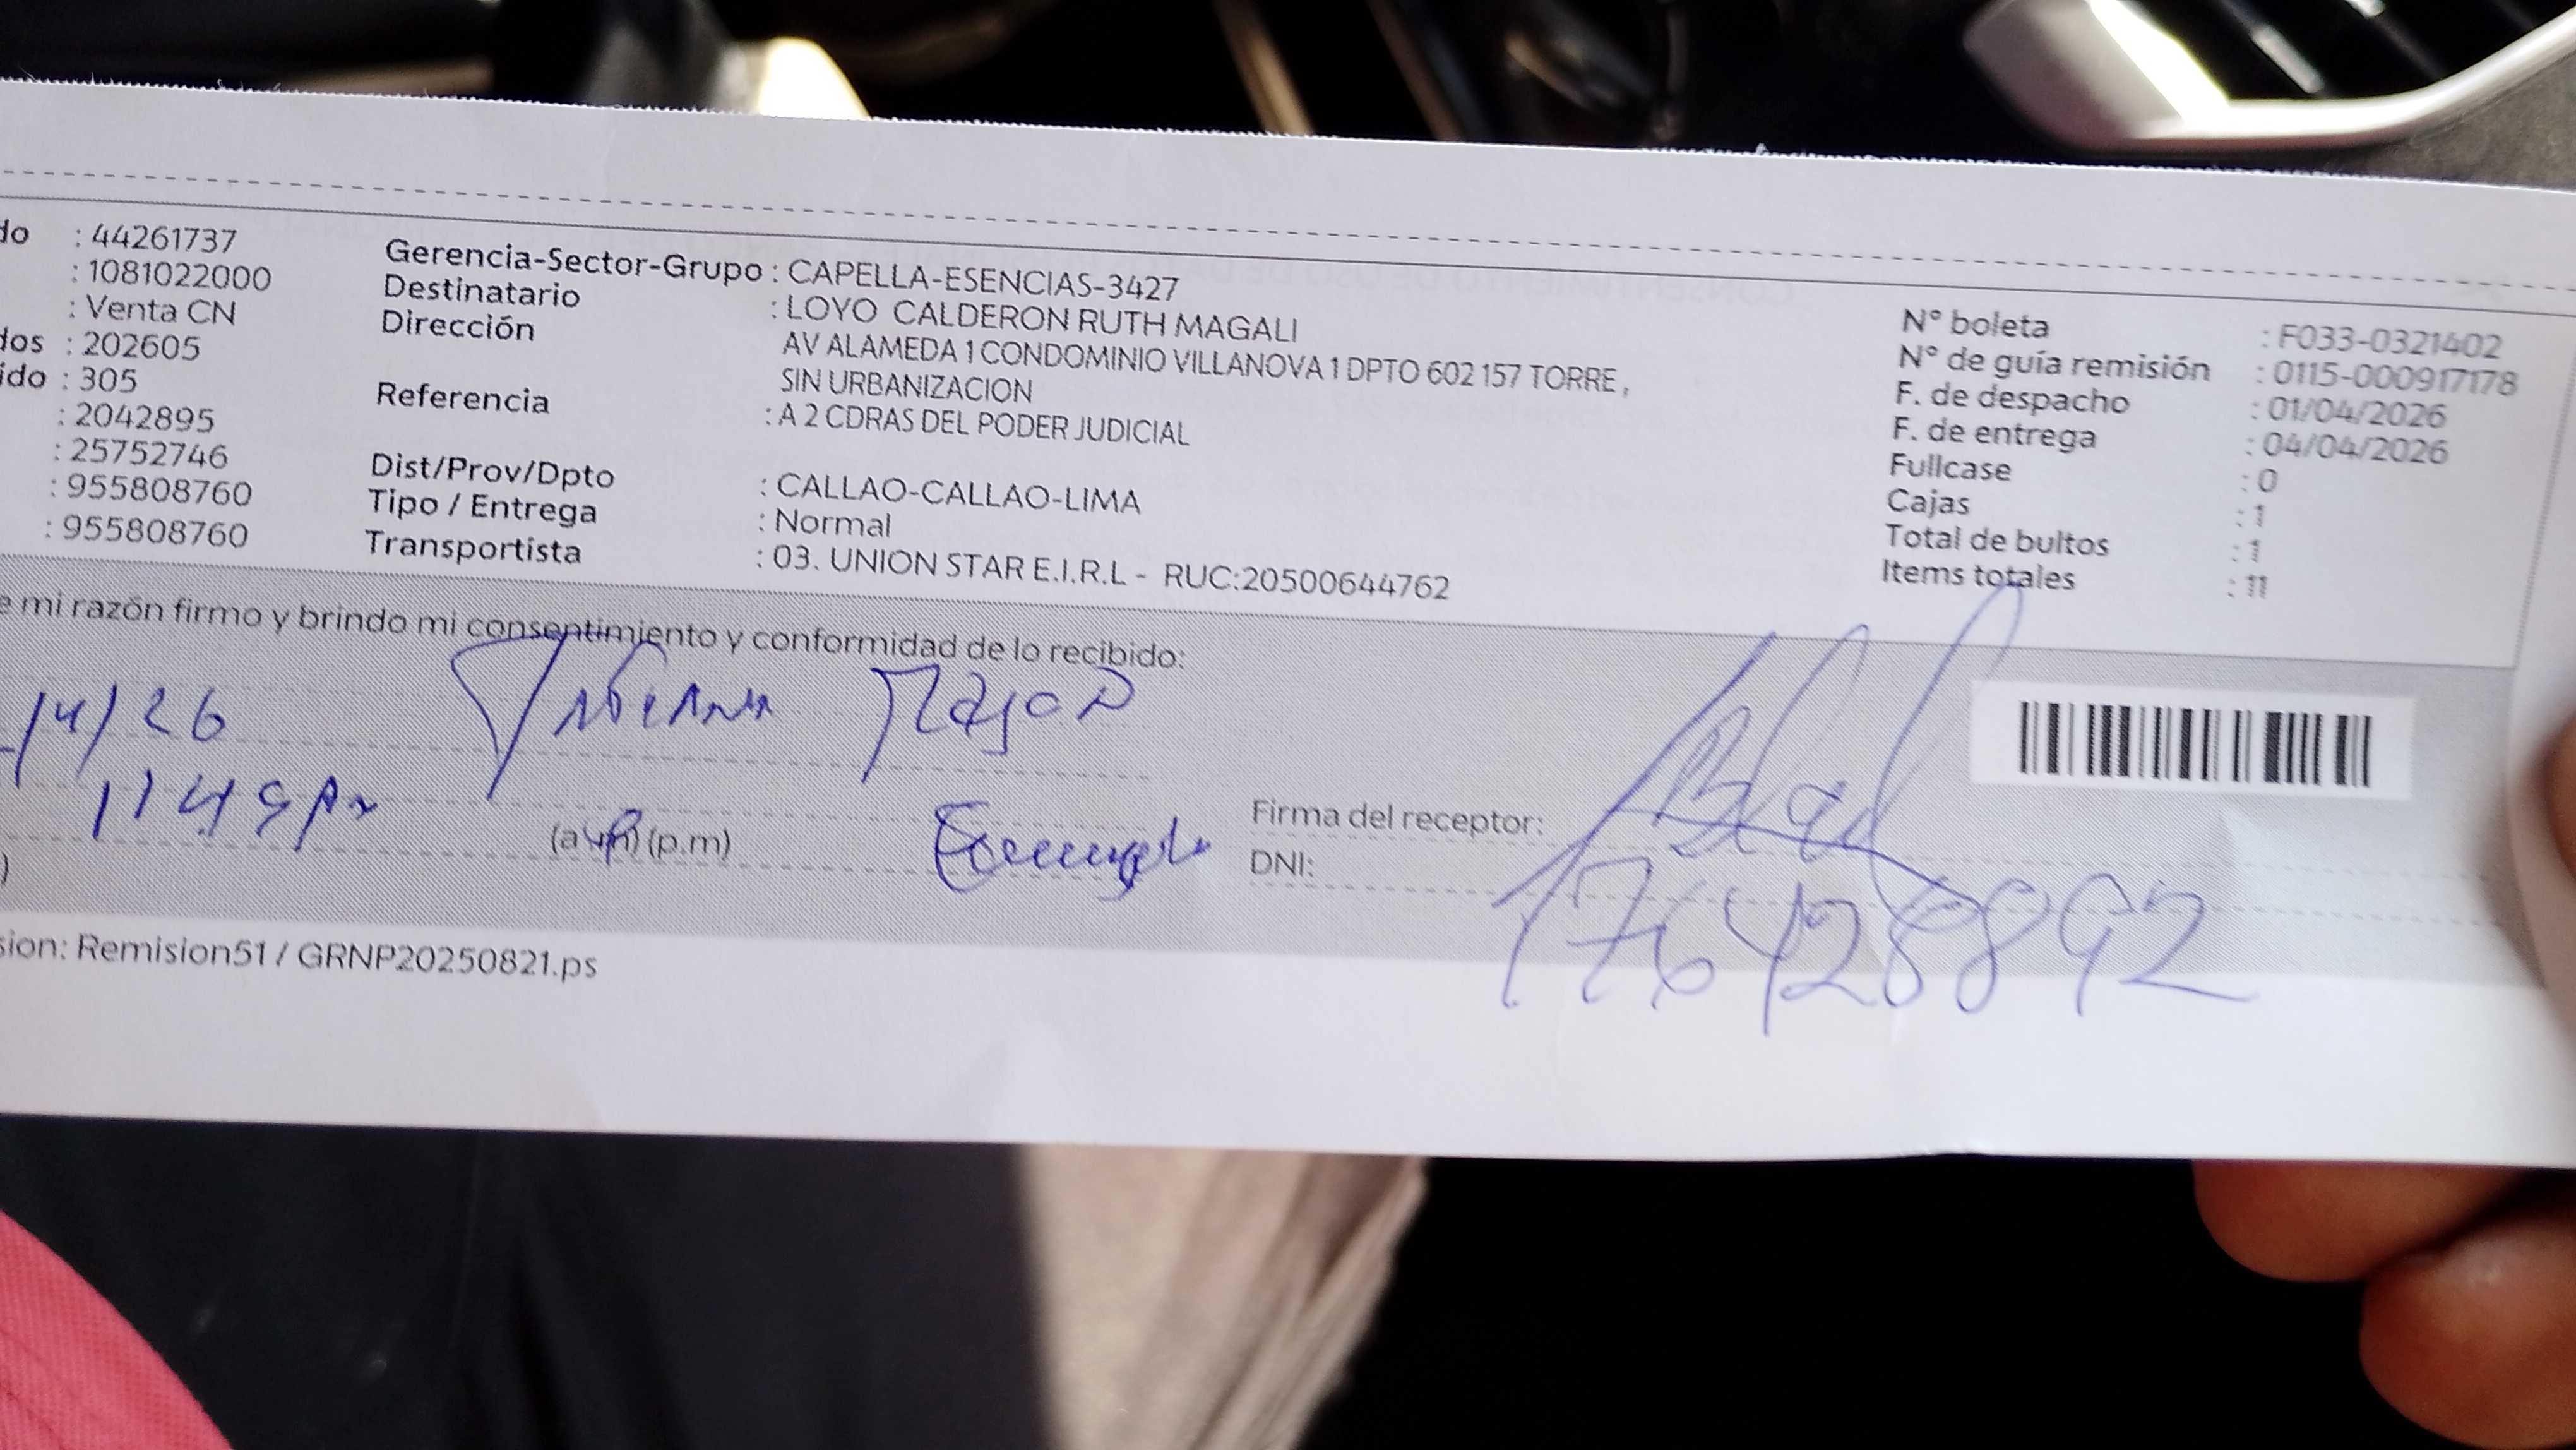 do : 44261737
: 1081022000
: Venta CN
dos : 202605
ido : 305
: 2042895
: 25752746
: 955808760
: 955808760
Gerencia-Sector-Grupo : CAPELLA-ESENCIAS-3427
Destinatario : LOYO CALDERON RUTH MAGALI
Dirección AV ALAMEDA 1 CONDOMINIO VILLANOVA 1 DPTO 602 157 TORRE ,
SIN URBANIZACION
Referencia : A 2 CDRAS DEL PODER JUDICIAL
Dist/Prov/Dpto : CALLAO-CALLAO-LIMA
Tipo / Entrega : Normal
Transportista : 03. UNION STAR E.I.R.L - RUC:20500644762
N° boleta : F033-0321402
N° de guía remisión : 0115-000917178
F. de despacho : 01/04/2026
F. de entrega : 04/04/2026
Fullcase : 0
Cajas : 1
Total de bultos : 1
Items totales : 11
e mi razón firmo y brindo mi consentimiento y conformidad de lo recibido:
/4/26
(a.m) (p.m)
Firma del receptor:
DNI: 76428892
)
sion: Remision51 / GRNP20250821.ps